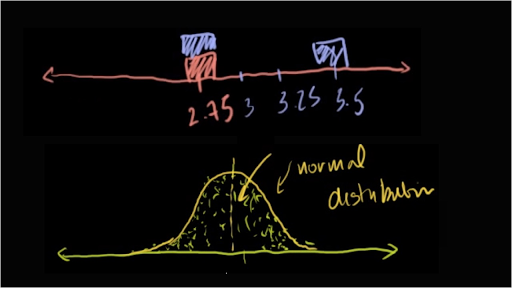 2.75 3 3.25 3.5
normal
distribution